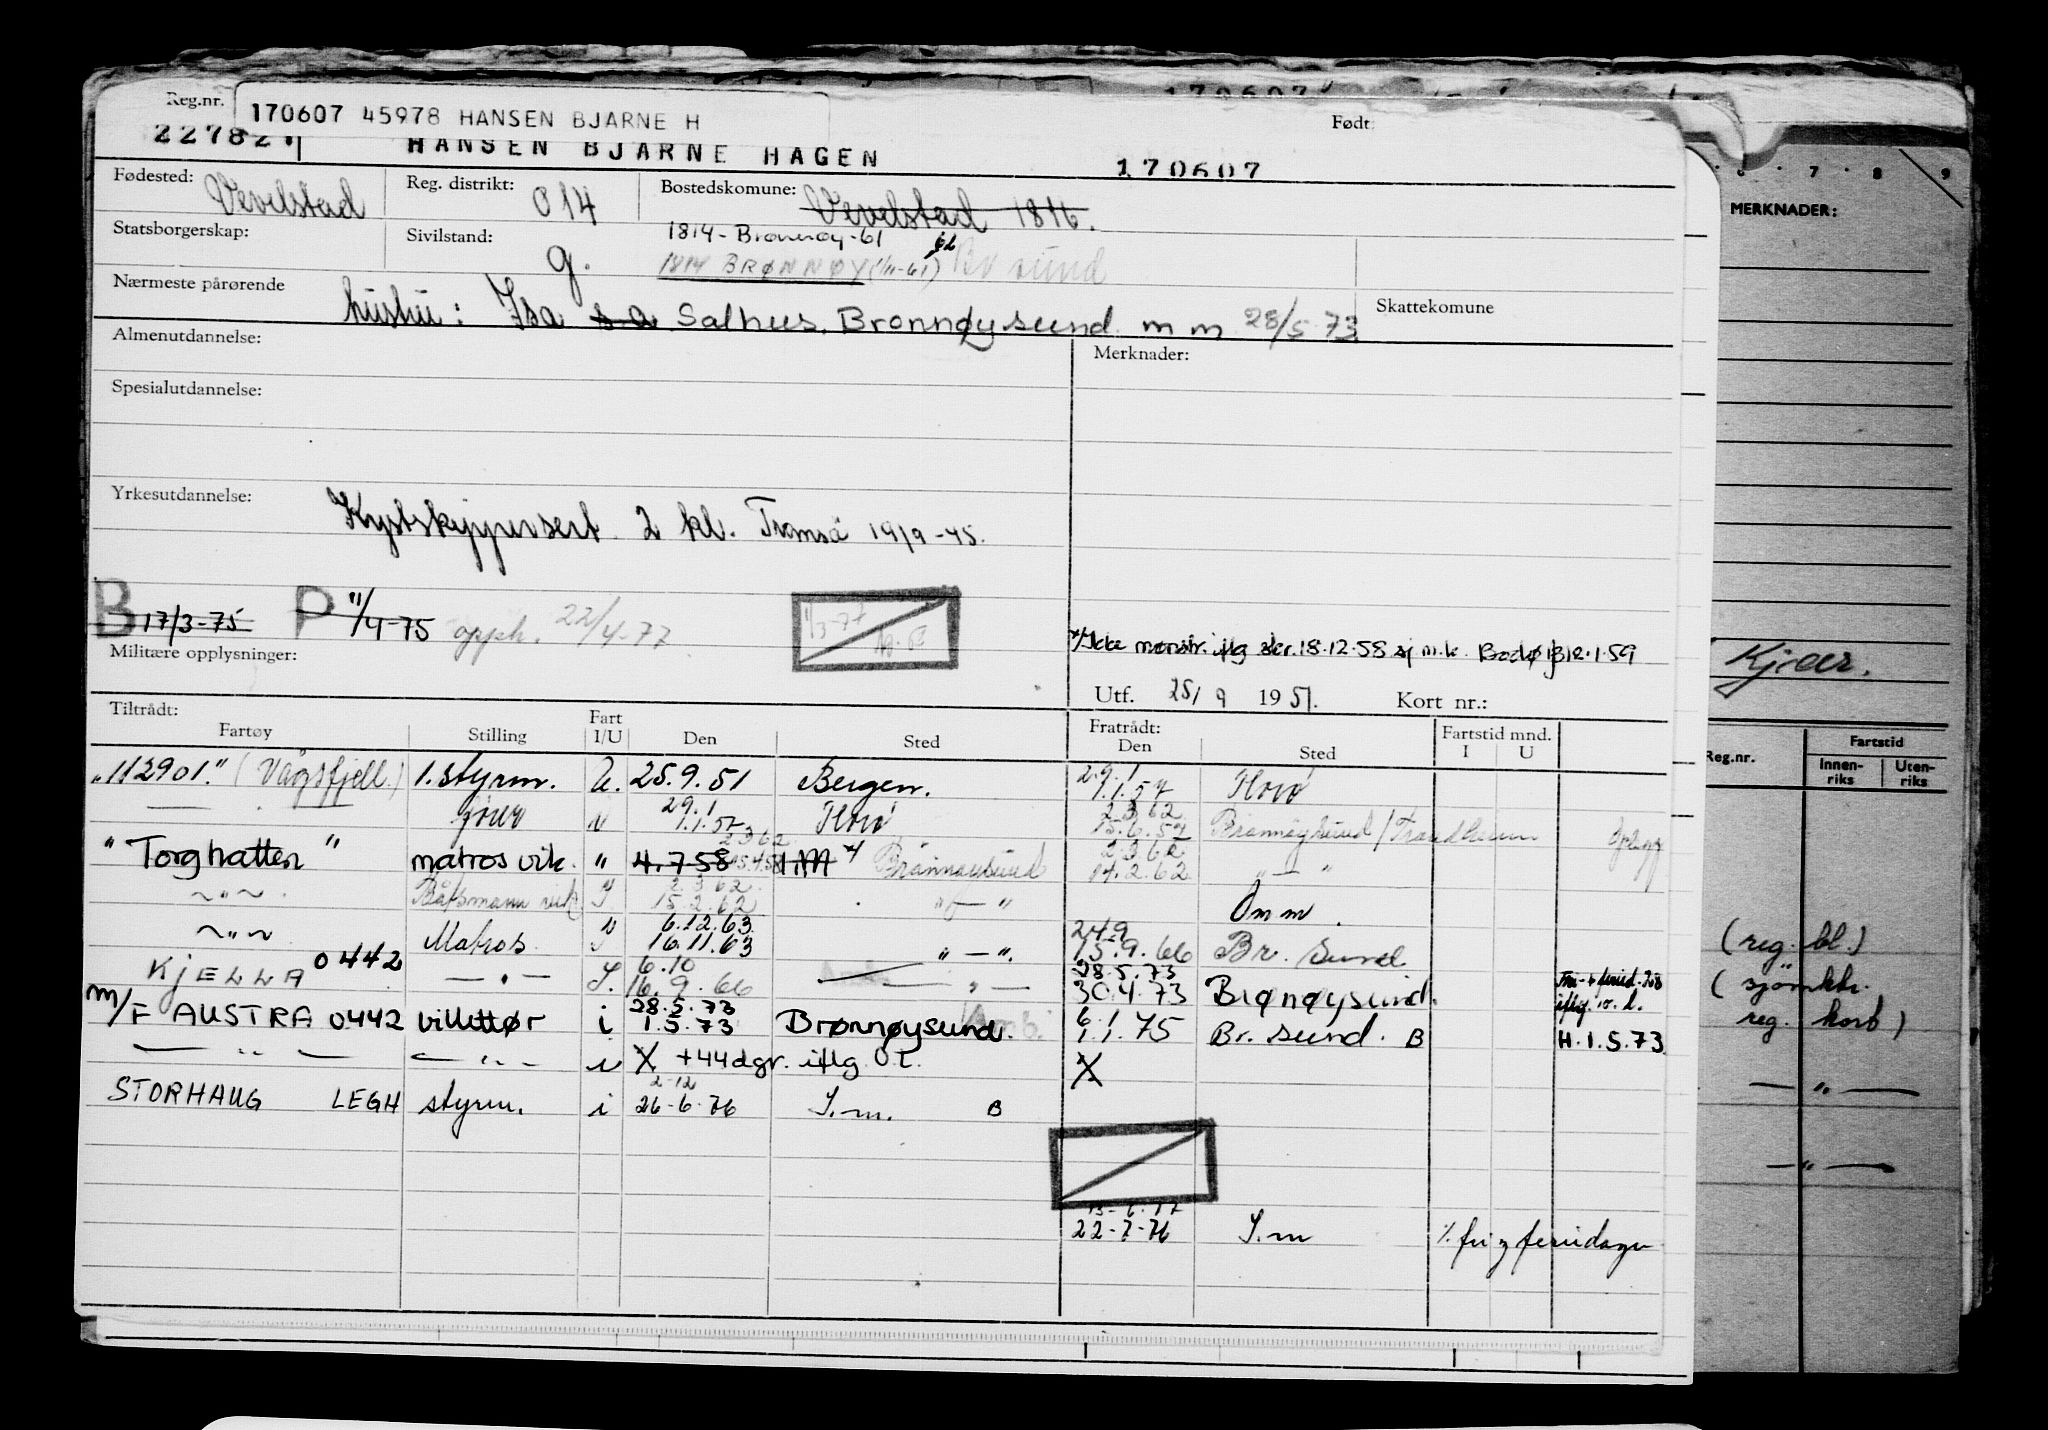 170607"
Reg.nr.
170607 45978 HANSEN BJARNE H
Født:
227821
HANSEN BJARNE HAGEN
170607
Fødested: Vevelstad
Reg. distrikt: 014
Bostedskomune: Vevelstad 1816.
Statsborgerskap:
Sivilstand: g.
1814-Brønnøy-61
1814 BRØNNØY (1/11-61) Br sund
Nærmeste pårørende
hustru: Isa Salhus, Brønnøysund m m 28/5 73
Skattekomune
Almenutdannelse:
Merknader:
Spesialutdannelse:
Yrkesutdannelse: Kystskippersert. 2 kl. Tromsø 19/9-45.
B 17/3-75 P 11/4-75 opph. 22/4-77
Militære opplysninger:
*/Ikke mønstr. iflg skr. 18.12.58 sj m.k. Bodø 12.1.59
Utf. 25/9 1951. Kort nr.:
Tiltrådt:
Fartøy Stilling Fart I/U Den Sted
Fratrådt: Den Sted Fartstid mnd. I U
"112901." (Vågsfjell) 1. styrm. U. 25.9.51 Bergen. 29.1 1.1.57 Florø
29.1 1.1.57 Florø 2.3.62 15.6.57 Brønnøysund/Trondheim
"Torghatten" matros vik. " 4.7.58 15.4.58 Brønnøysund 2.3.62 14.2.62 " — "
~ " ~ Båtsmann vik 2.3.62 15.2.62 " — " Omm.
~ " ~ Matros 6.12.63 16.11.63 " — ". 24.9 15.9.66 Br. sund
KJELLA 0442 — " — 6.10 16.9.66 — " — 28.5.73 30.4.73 Brønnøysund.
M/F AUSTRA 0442 billettør i 28.5.73 1.5.73 Brønnøysund. 6.1 1.1.75 Br. sund. B H.1.5.73
— " — — " — i X +44 dgr. iflg. O.T. X
STORHAUG LEGH styrm. i 2-12 26-6-76 S.m. B
22-7-76 S.m % fri og feriedager
7 8 9
MERKNADER:
Kjær.
Reg.nr. Fartstid
Innen-riks Uten-riks
(reg. bl.)
(sjømktr.
reg. kort)
— " —
— " —